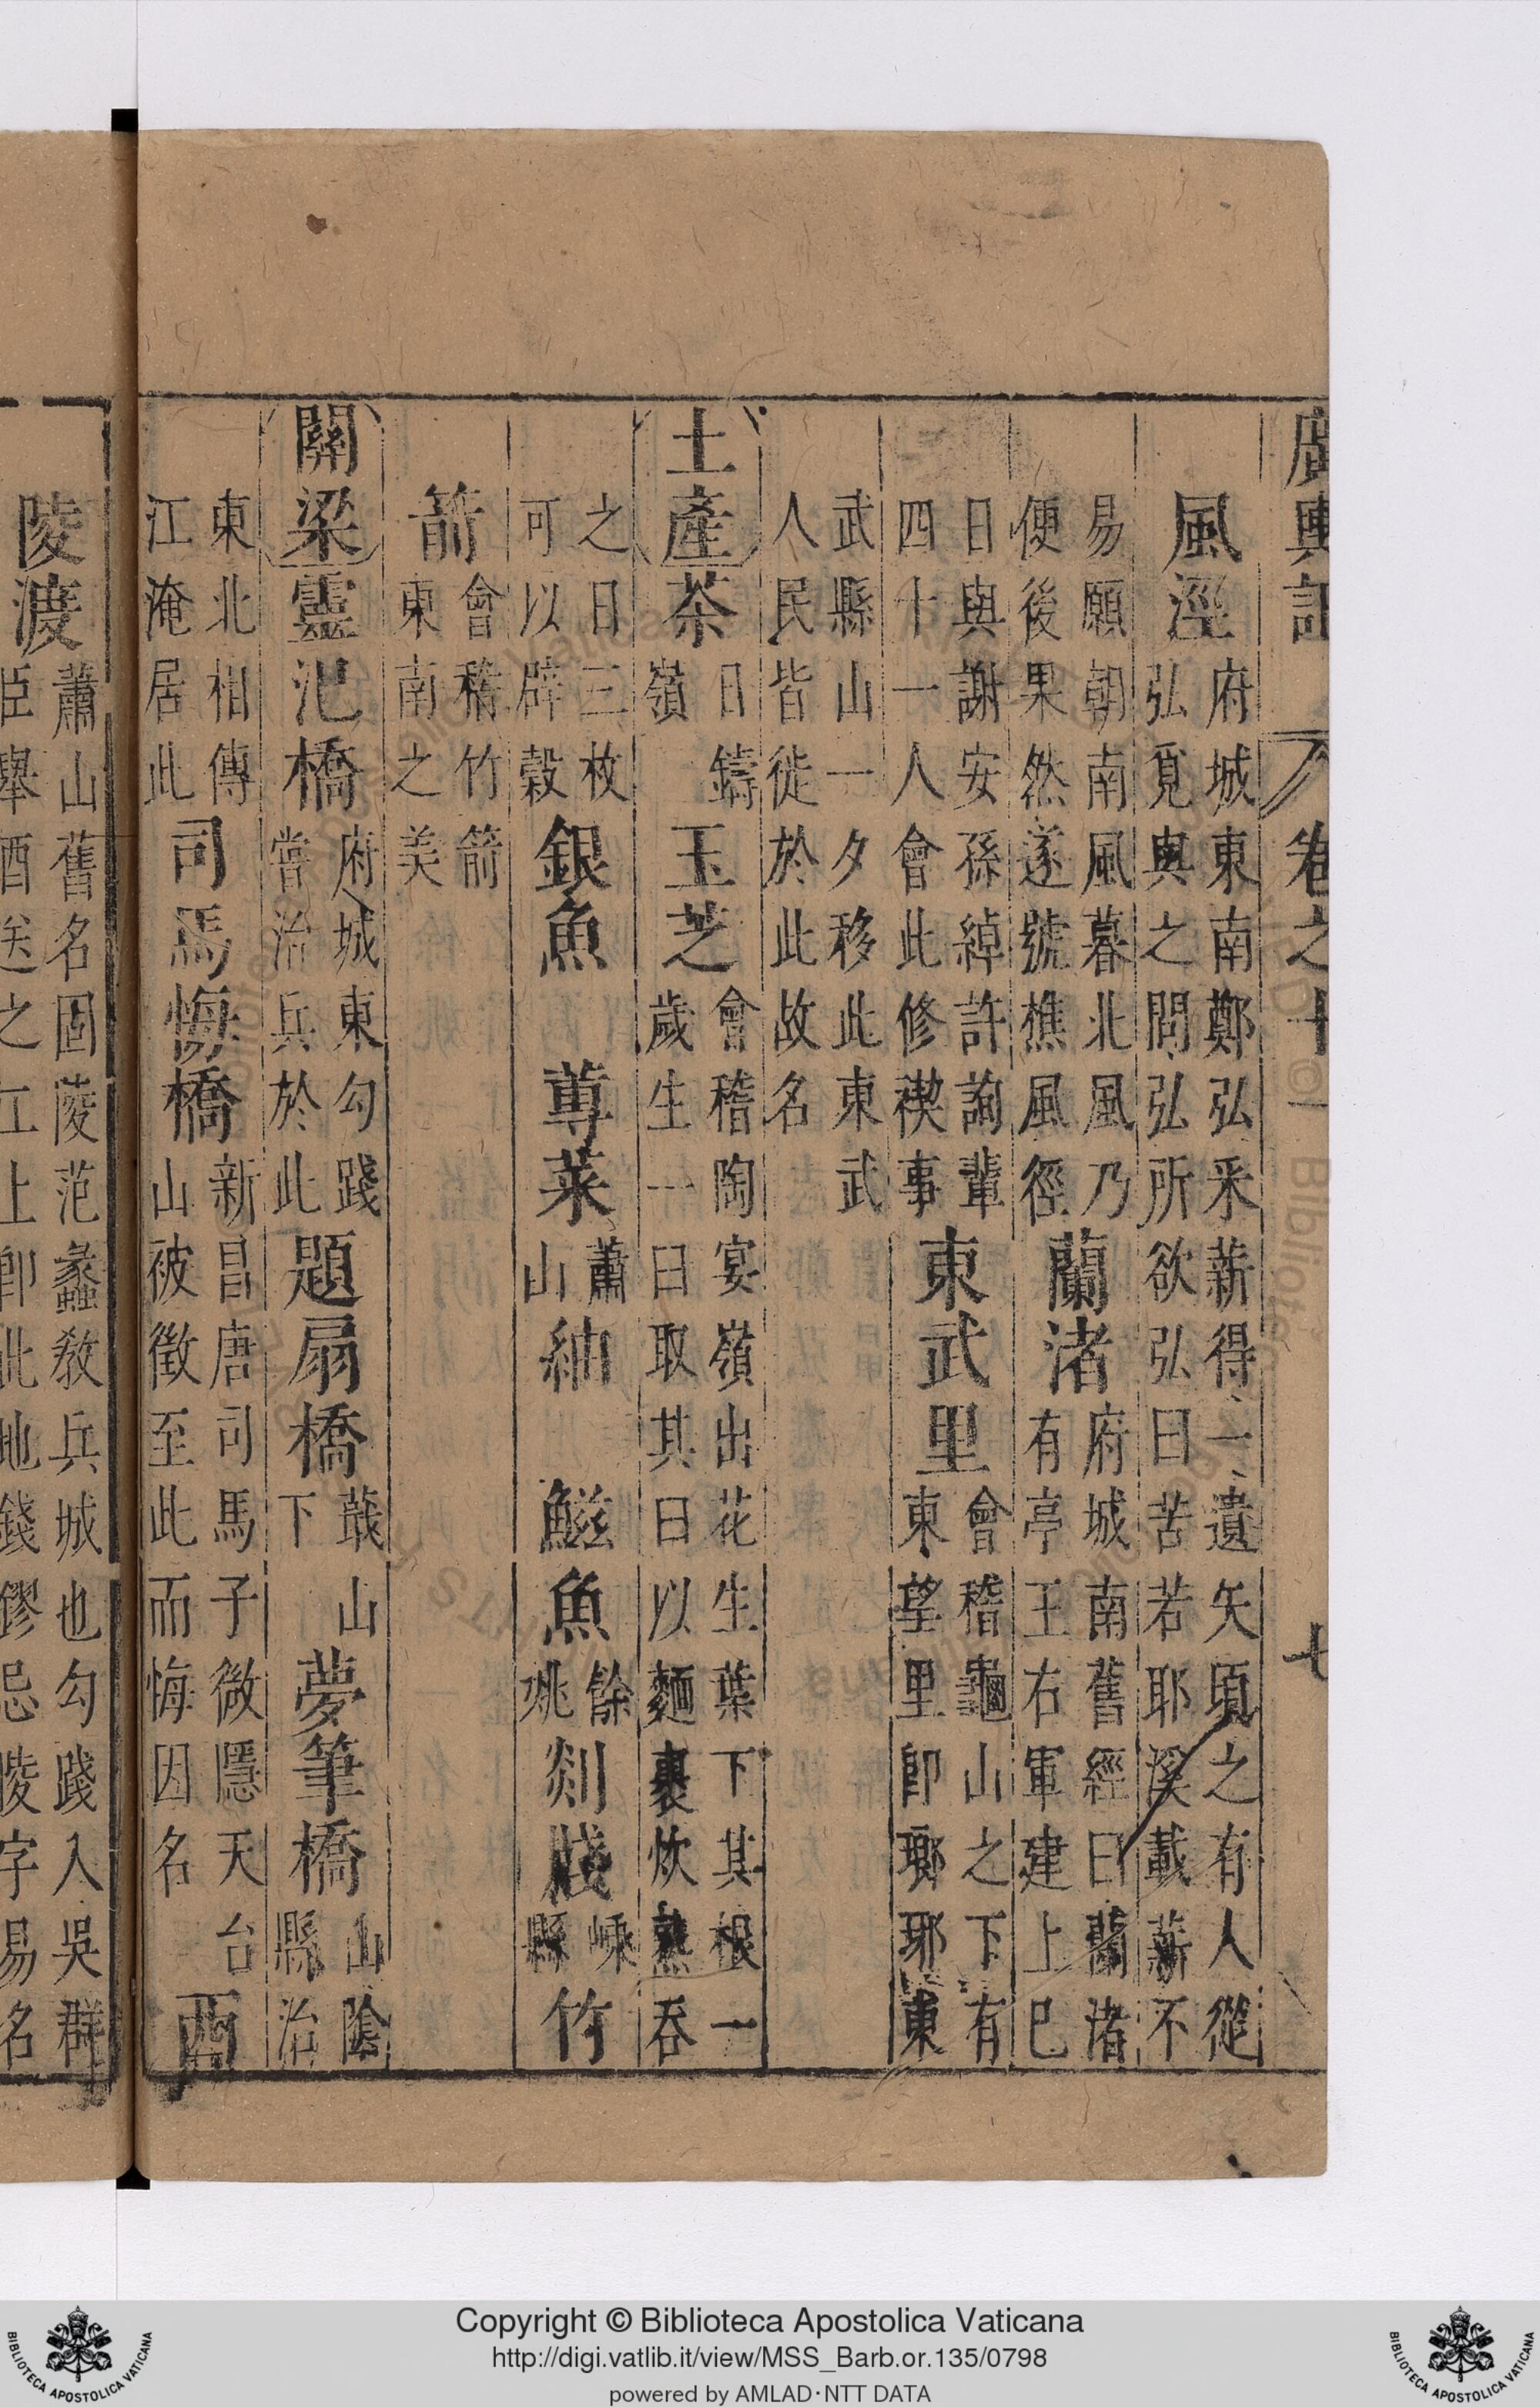 廣輿記 卷之十一 七
風涇 府城東南鄭弘采薪得一遺矢頃之有人從
弘覓與之問弘所欲弘曰苦若耶溪載薪不
易願朝南風暮北風乃
便後果然遂號樵風徑 蘭渚 府城南舊經曰蘭渚
有亭王右軍建上巳
日與謝安孫綽許詢輩
四十一人會此修禊事 東武里 會稽龜山之下有
東望里即瑯琊東
武縣山一夕移此東武
人民皆徙於此故名
土產 茶 日鑄
嶺 玉芝 會稽陶宴嶺出花生葉下其根一
歲生一臼取其臼以麵裹炊熟吞
之日三枚
可以辟穀 銀魚 蓴菜 蕭
山 紬 鰦魚 餘
姚 剡牋 嵊
縣 竹
箭 會稽竹箭
東南之美
關梁 靈汜橋 府城東勾踐
嘗治兵於此 題扇橋 蕺山
下 夢筆橋 山陰
縣治
東北相傳
江淹居此 司馬悔橋 新昌唐司馬子微隱天台
山被徵至此而悔因名 西
陵渡 蕭山舊名固陵范蠡敎兵城也勾踐入吳群
臣舉酒送之江上卽此地錢鏐忌陵字易名
Copyright © Biblioteca Apostolica Vaticana
http://digi.vatlib.it/view/MSS_Barb.or.135/0798
powered by AMLAD·NTT DATA
BIBLIOTECA APOSTOLICA VATICANA
BIBLIOTECA APOSTOLICA VATICANA